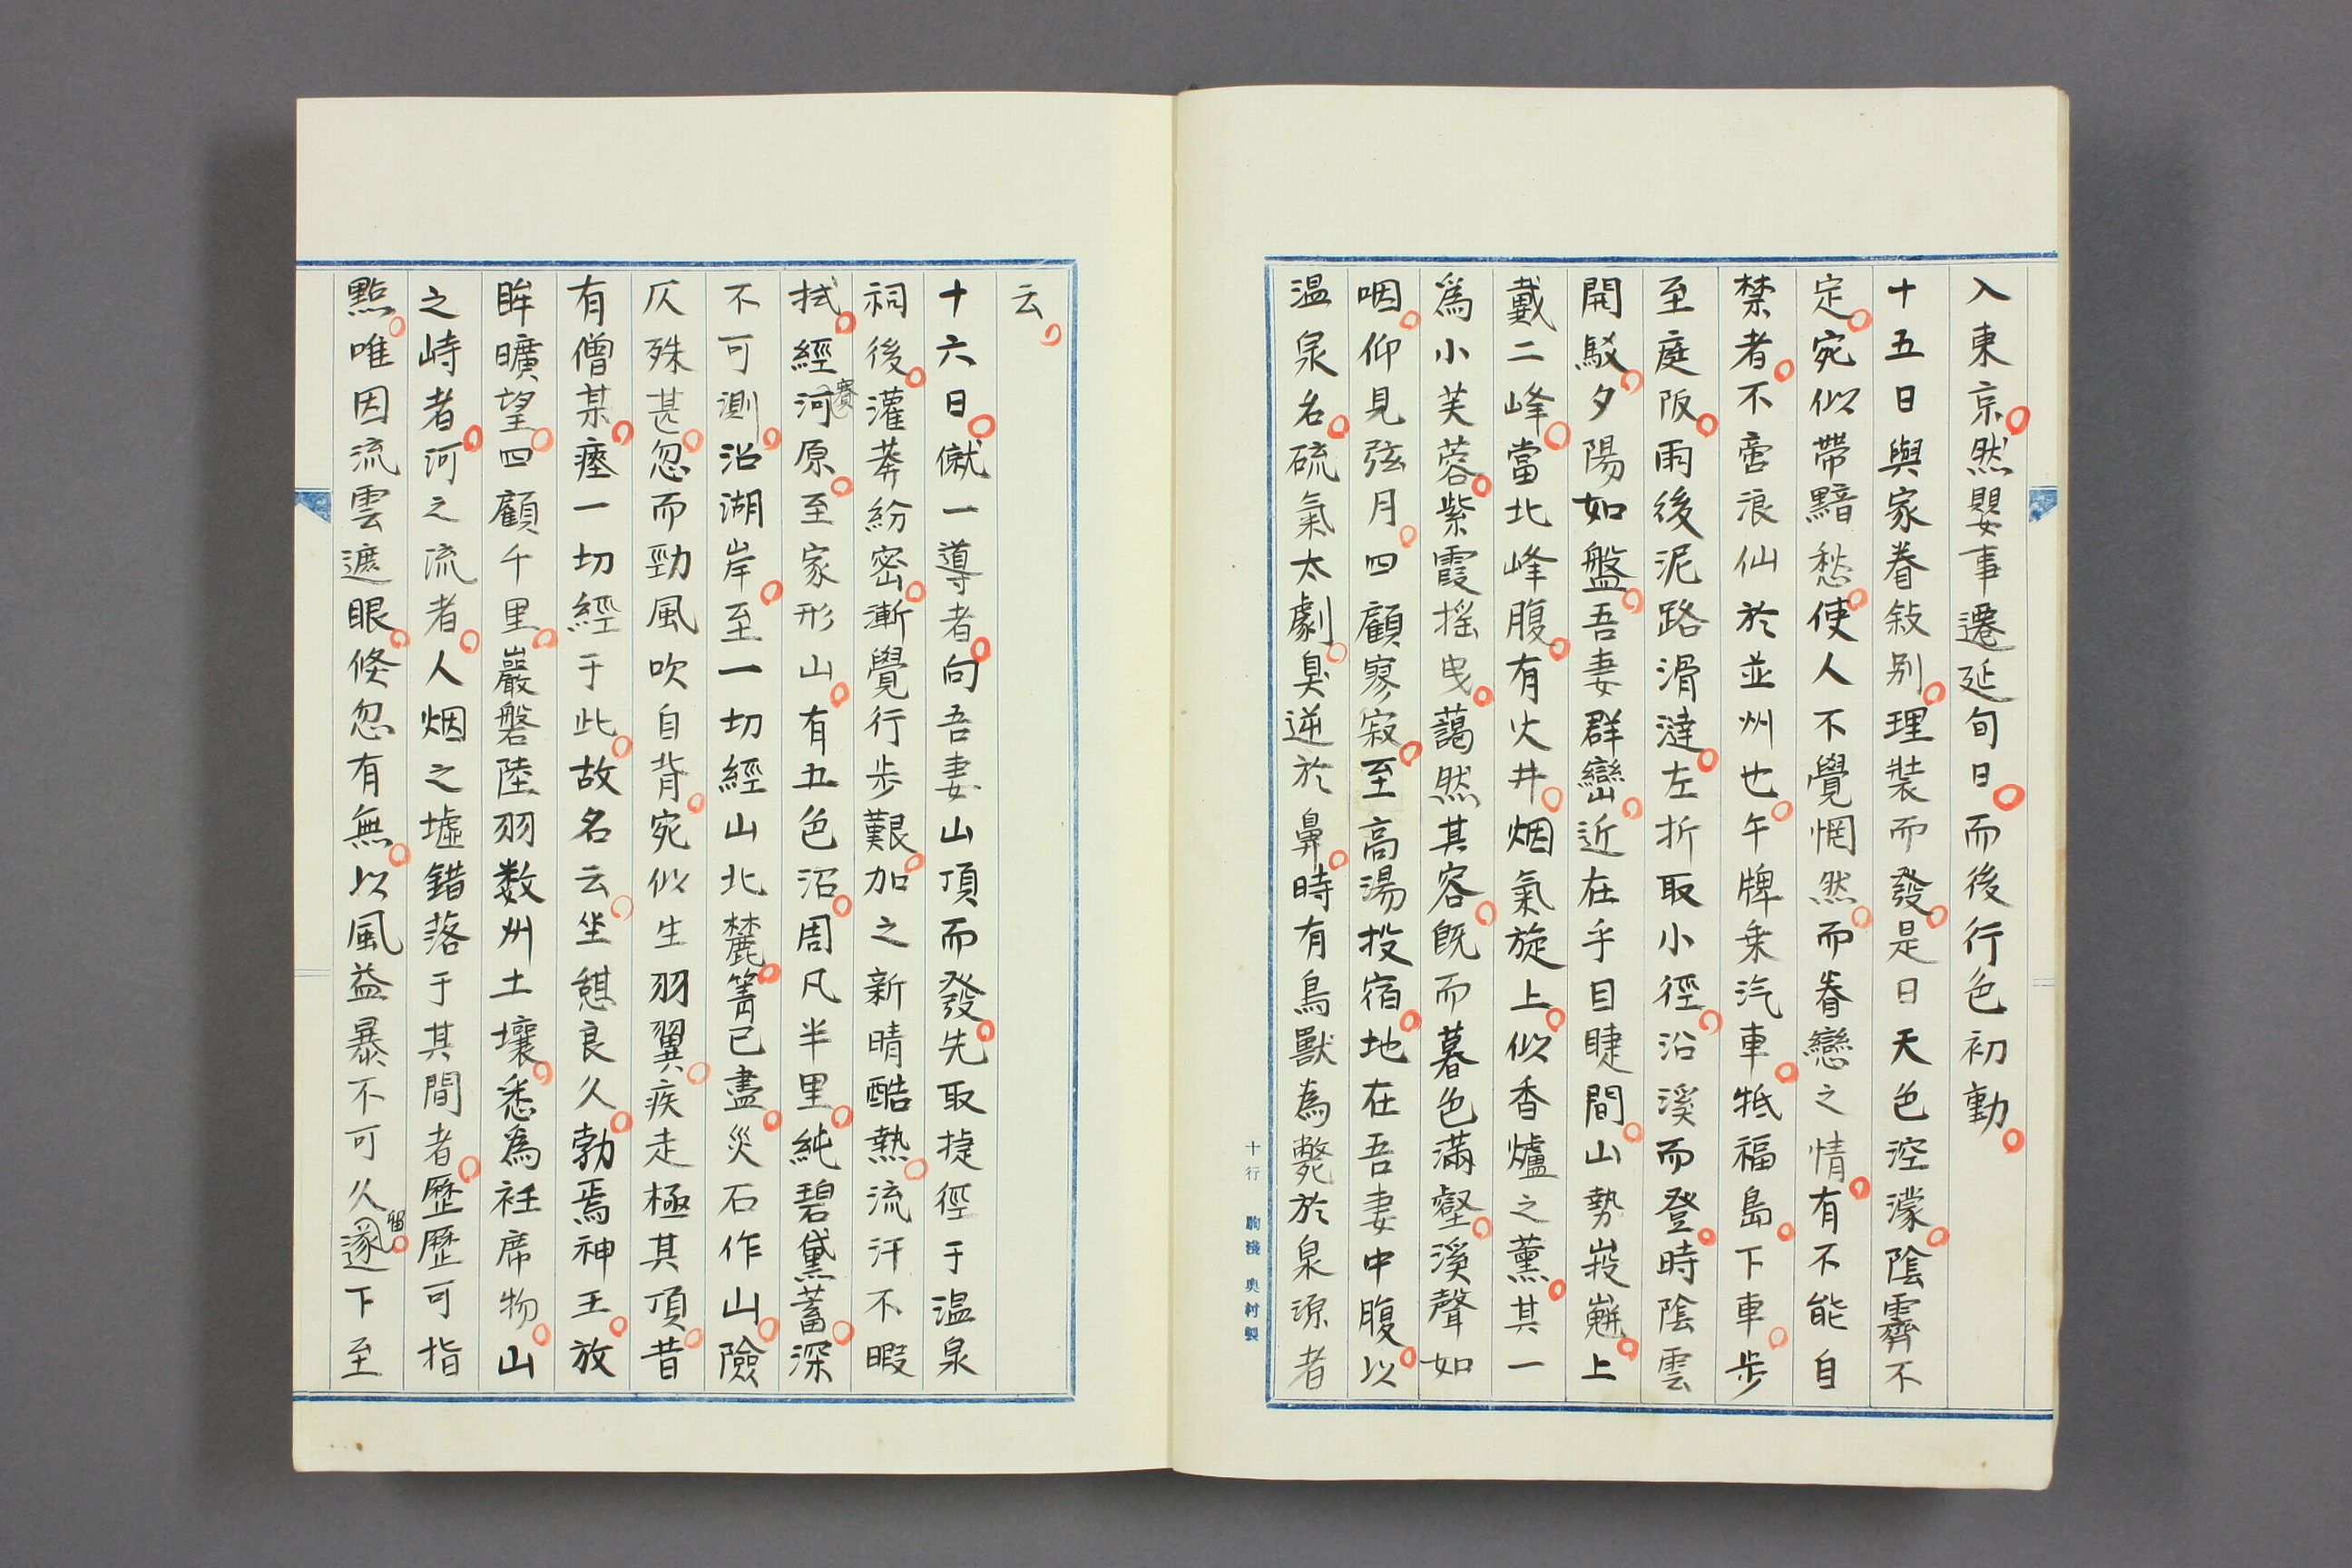 入東京。然嬰事遷延旬日。而後行色初動。
十五日與家眷敍別。理裝而發。是日天色涳濛。陰霽不
定。宛似帶黯愁。使人不覺惘然。而眷戀之情。有不能自
禁者。不啻浪仙於並州也。午牌乗汽車。牴福島。下車步
至庭阪。雨後泥路滑澾。左折取小徑。沿溪而登。時陰雲
開駁。夕陽如盤。吾妻群巒。近在乎目睫間。山勢嵈巍。上
戴二峰。當北峰腹。有火井。烟氣旋上。似香爐之薰。其一
為小芙蓉。紫霞搖曳。藹然其容。既而暮色滿壑。溪聲如
咽。仰見弦月。四顧寥寂。至高湯投宿。地在吾妻中腹。以
温泉名。硫氣太劇。臭逆於鼻。時有鳥獸為斃於泉源者
云。
十六日。僦一導者。向吾妻山頂而發。先取捷徑于温泉
祠後。灌莽紛密。漸覺行步艱。加之新晴酷熱。流汗不暇
拭。經賽河原。至家形山。有五色沼。周凡半里。純碧黛蓄。深
不可測。沿湖岸。至一切經山北麓。箐已盡。災石作山。險
仄殊甚。忽而勁風吹自背。宛似生羽翼。疾走極其頂。昔
有僧某。瘞一切經于此。故名云。坐憩良久。勃焉神王。放
眸曠望。四顧千里。巖磐陸羽数州土壤。悉為衽席物。山
之峙者。河之流者。人烟之墟錯落于其間者。歷歷可指
點。唯因流雲遮眼。倏忽有無。以風益暴不可久留。遂下至
十行 駒棧 奥村製